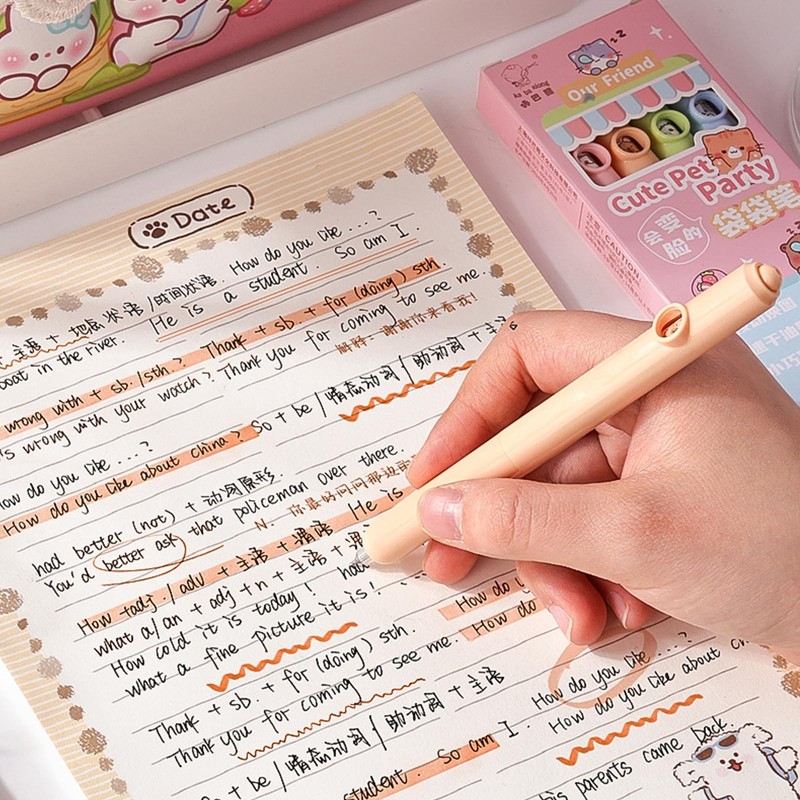 Our Friend
ka ba xiong
咔巴熊
Cute Pet
Party
会变
脸的
袋袋笔
CAUTION
Date
How do you like ...?
主语 + 地点状语/时间状语. So am I.
He is a student.
Thank + sb. + for (doing) sth
boat in the river. Thank you for coming to see me.
解释: 谢谢你来看我!
wrong with + sb./sth?
's wrong with your watch? So + be / 情态动词 / 助动词 + 主语
How do you like ...?
How do you like about China?
had better (not) + 动词原形.
You'd better ask that policeman over there.
N. 你最好问问那边
How + adj./adv + 主语 + 谓语 He is
what a/an + adj + n + 主语 +
How cold it is today! had
what a fine picture it is!
How do
How do
Thank + sb. + for (doing) sth. How do you like ...?
Thank you for coming to see me. How do you like about
+ be / 情态动词 / 助动词 + 主语
student. So am I. his parents came back.